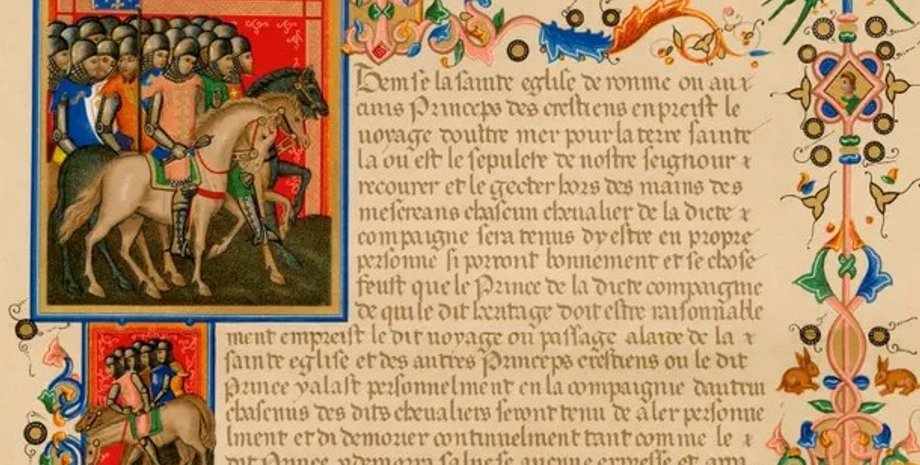 Item se la sainte eglise de romme ou aux
cuns Princeps des crestiens enpreist le
voyage doultre mer pour la terre sainte
la ou est le sepulcre de nostre seignour &
recouvrer et le gecter hors des mains des
mescreans chascun chevalier de la dicte &
compaigne sera tenus dy estre en propre
personne si porront bonnement et se chose
feust que le Prince de la dicte compaigme
de qui le dit heritage doit estre raisonnable
ment empreist le dit voyage ou passage alaide de la &
sainte eglise et des autres Princeps crestiens ou le dit
Prince y alast personnelment en la compaignie dautrui
chascuns des dits chevaliers seront tenu de aler personne
lment et di demorer continuelment tant comme le &
dit Prince y demorra